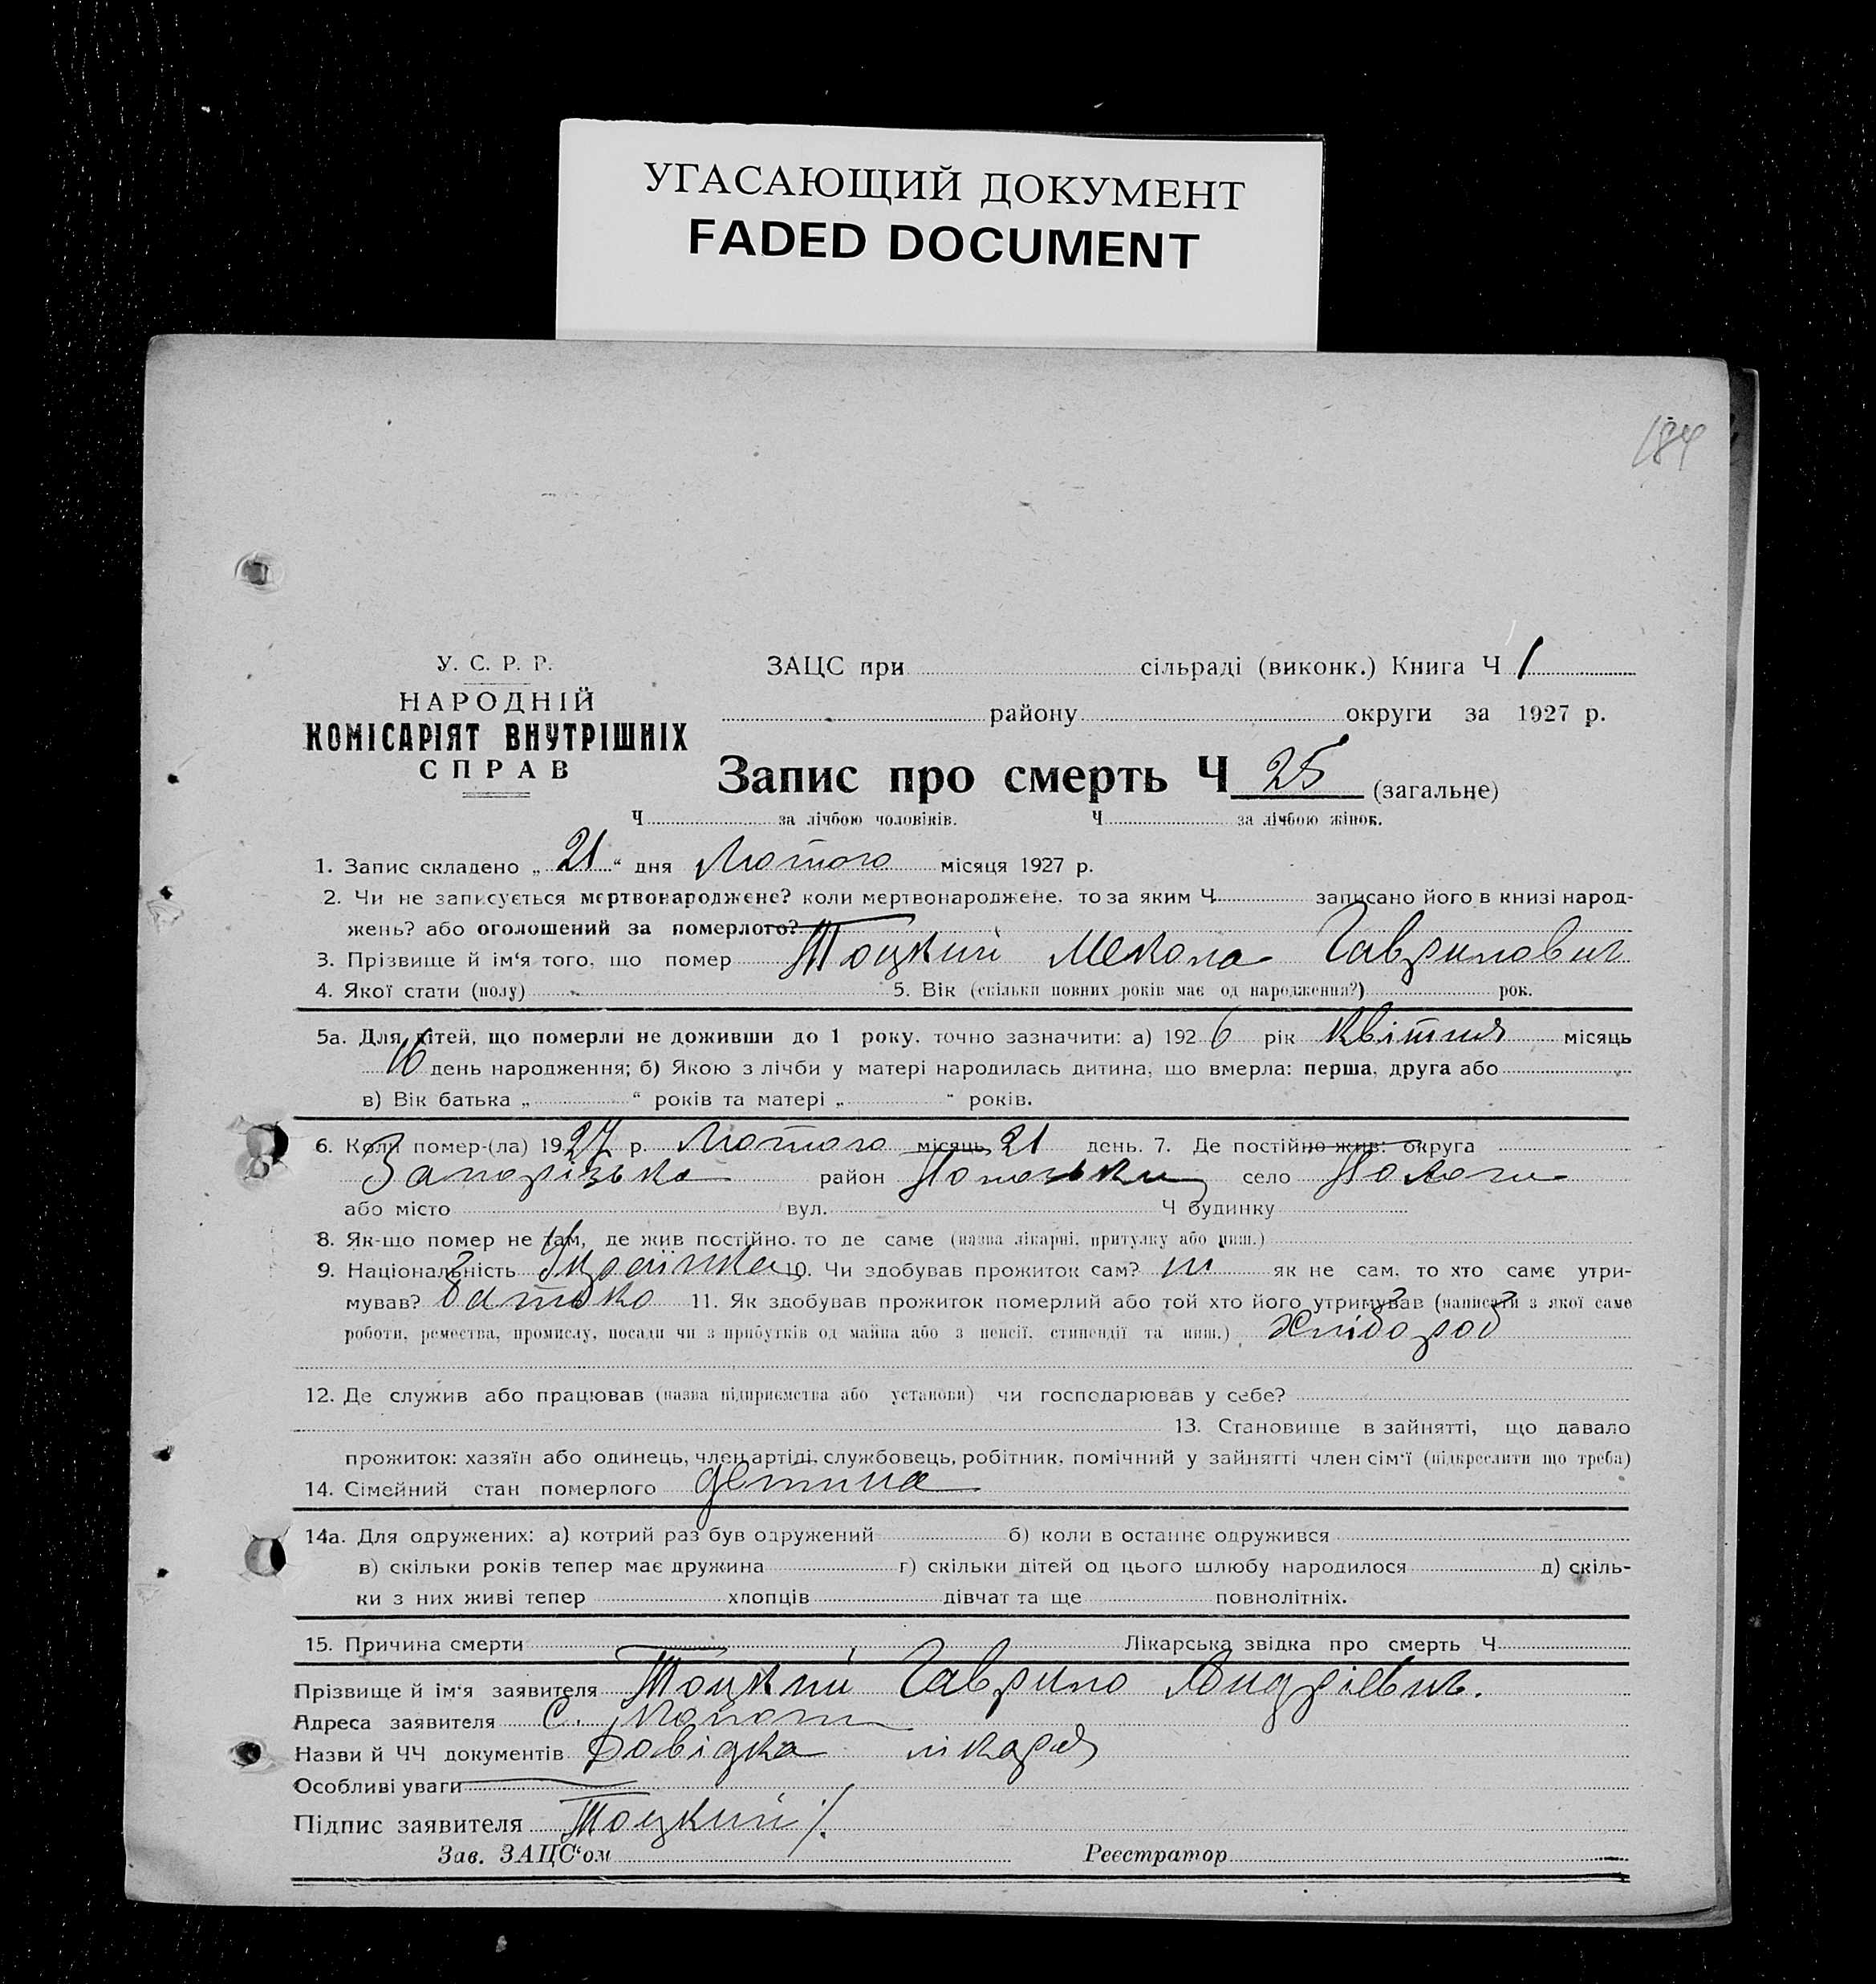 УГАСАЮЩИЙ ДОКУМЕНТ
FADED DOCUMENT
184
У. С. Р. Р.
НАРОДНІЙ
КОМІСАРІЯТ ВНУТРІШНІХ
СПРАВ
ЗАЦС при сільраді (виконк.) Книга Ч 1
району округи за 1927 р.
Запис про смерть Ч 25 (загальне)
Ч за лічбою чоловіків. Ч за лічбою жінок.
1. Запис складено „ 21 “ дня Лютого місяця 1927 р.
2. Чи не записується мертвонароджене? коли мертвонароджене, то за яким Ч записано його в книзі народ-
жень? або оголошений за померлого?
3. Прізвище й ім‘я того, що помер Тоцкий Мекола Гаврилович
4. Якої стати (полу) 5. Вік (скільки повних років має од народження?) рок.
5а. Для дітей, що померли не доживши до 1 року, точно зазначити: а) 192 6 рік Квітня місяць
16 день народження; б) Якою з лічби у матері народилась дитина, що вмерла: перша, друга або
в) Вік батька „ “ років та матері „ “ років.
6. Коли помер-(ла) 19 27 р. Лютого місяць 21 день. 7. Де постійно жив: округа
Запорізька район Пологьки село Пологи
або місто вул. Ч будинку
8. Як-що помер не там, де жив постійно, то де саме (назва лікарні, притулку або инш.)
9. Національність 10. Чи здобував прожиток сам? ні як не сам, то хто саме утри-
мував? батько 11. Як здобував прожиток померлий або той хто його утримував (написати з якої саме
роботи, ремества, промислу, посади чи з прибутків од майна або з пенсії, стипендії та инш.) Хлібороб
12. Де служив або працював (назва підприємства або установи) чи господарював у себе?
13. Становище в зайнятті, що давало
прожиток: хазяїн або одинець, член артілі, службовець, робітник, помічний у зайнятті член сім‘ї (підкреслити що треба)
14. Сімейний стан померлого детина
14а. Для одружених: а) котрий раз був одружений б) коли в останнє одружився
в) скільки років тепер має дружина г) скільки дітей од цього шлюбу народилося д) скіль-
ки з них живі тепер хлопців дівчат та ще повнолітніх.
15. Причина смерти Лікарська звідка про смерть Ч
Прізвище й ім‘я заявителя Тоцкий Гаврило Андріевич.
Адреса заявителя С. Пологи
Назви й ЧЧ документів Довідка лікаря
Особливі уваги
Підпис заявителя Тоцкий
Зав. ЗАЦС‘ом Реєстратор